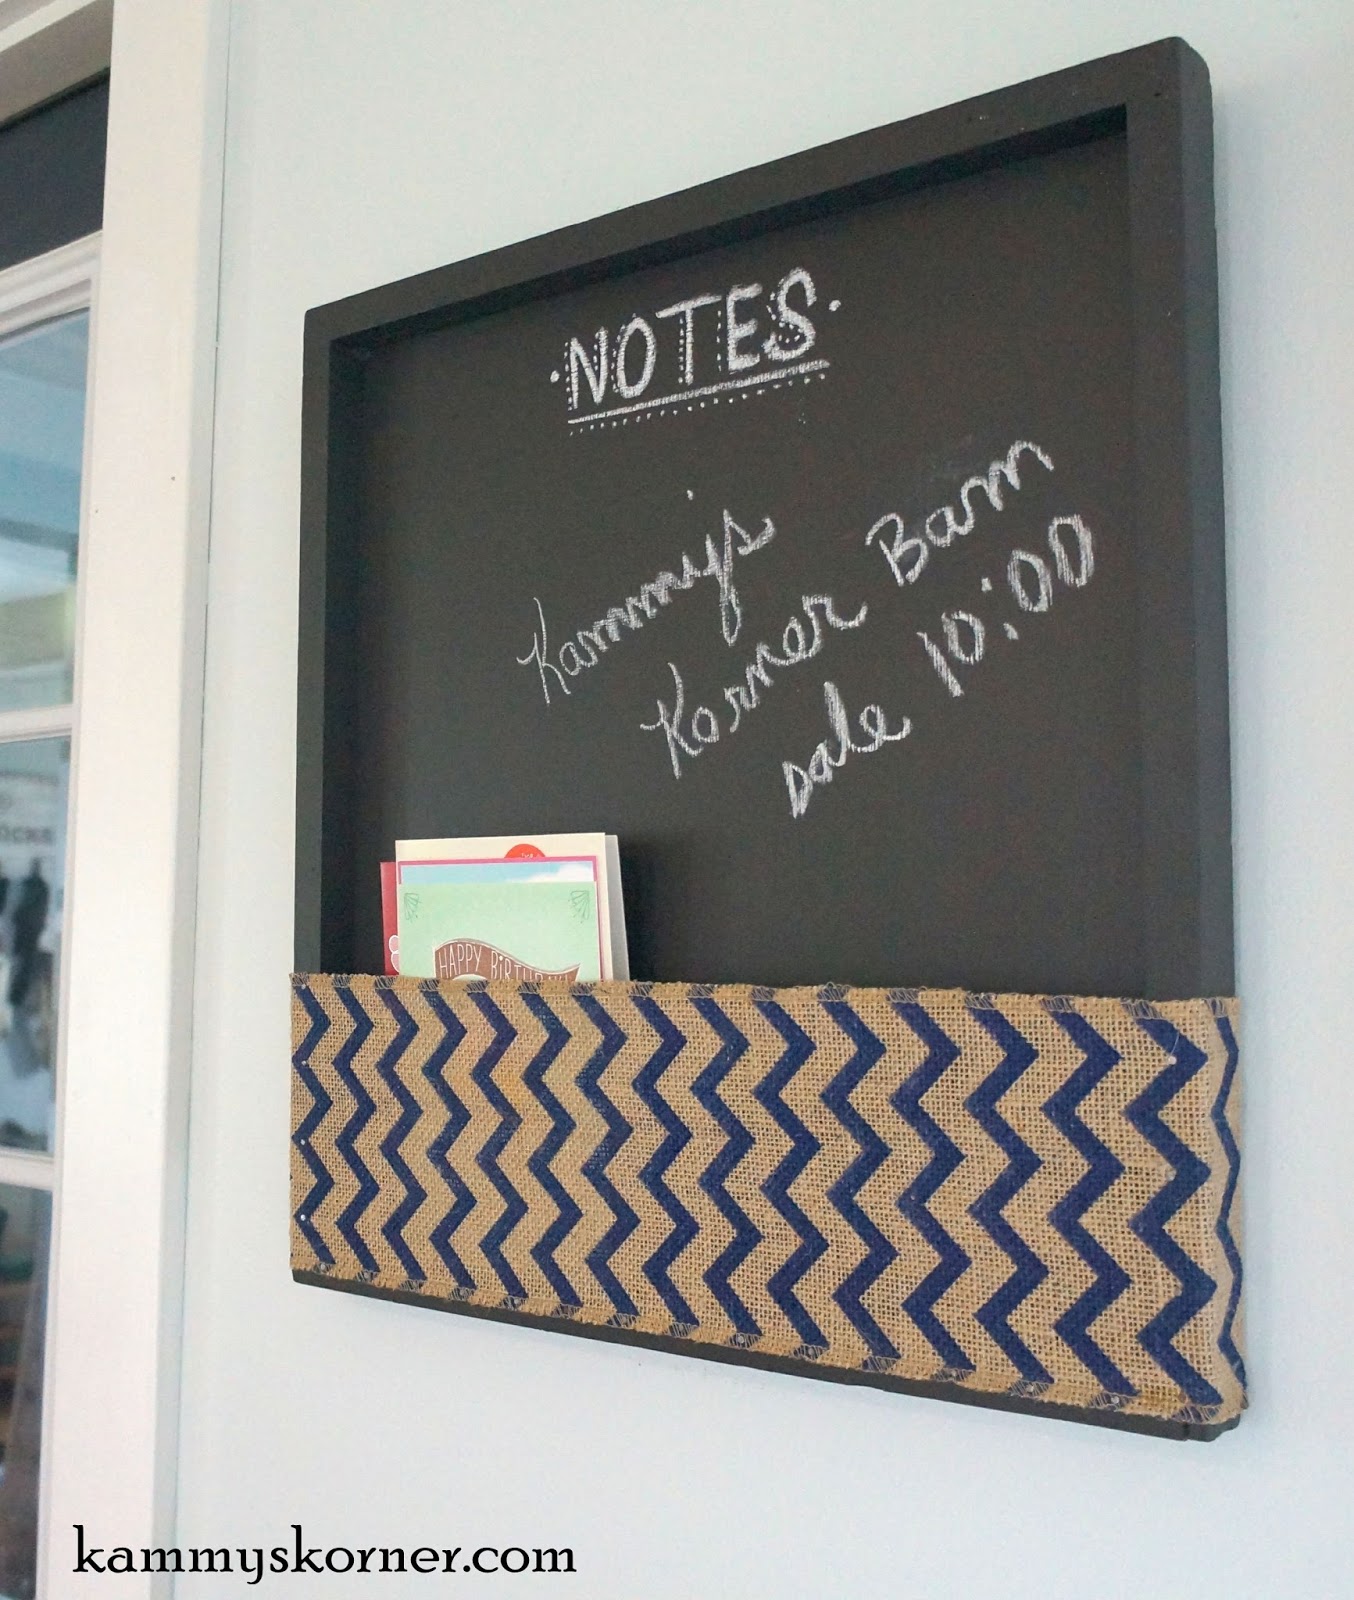 ·NOTES·
Kammy's
Korner Barn
sale 10:00
HAPPY BIRTHDAY
kammyskorner.com